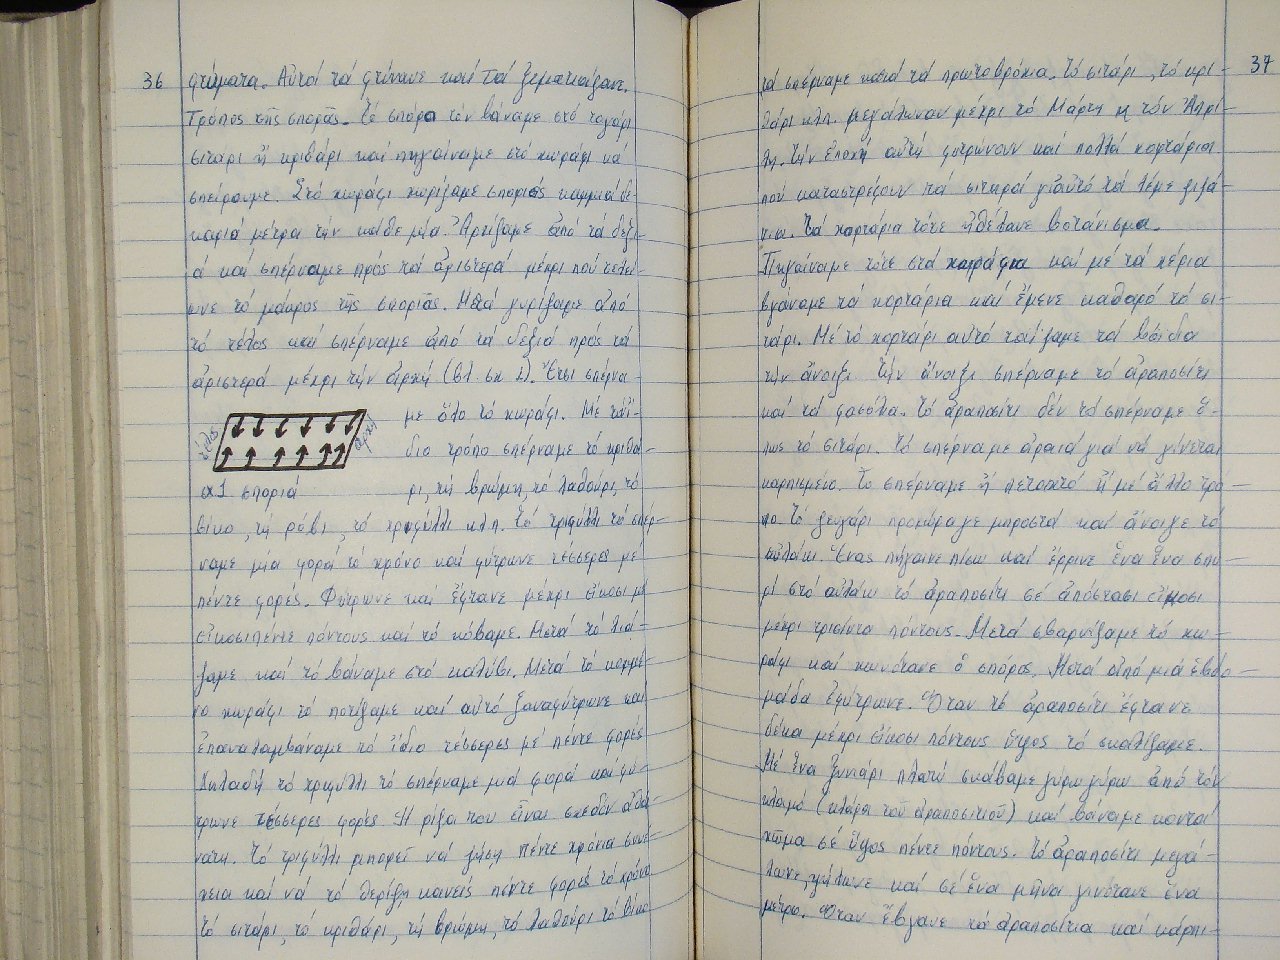 36
φτώματα. Αὐτοί τά φτύνανε καί τά ξεματιάζαν.
Τρόπος τῆς σπορᾶς. Τό σπόρο τόν βάναμε στό ταγάρι
σιτάρι ἤ κριθάρι καί πηγαίναμε στό χωράφι νά
σπείρουμε. Στό χωράφι χωρίζαμε σποριές καμμιά δε-
καριά μέτρα τήν κάθε μία. Ἀρχίζαμε ἀπό τά δεξι-
ά καί σπέρναμε πρός τά ἀριστερά μέχρι πού τελεί-
ωνε τό μάκρος τῆς σποριᾶς. Μετά γυρίζαμε ἀπό
τό τέλος καί σπέρναμε ἀπό τά δεξιά πρός τά
ἀριστερά μέχρι τήν ἀρχή (βλ. σχ 1). Ἔτσι σπέρνα-
με ὅλο τό χωράφι. Μέ τόν ἴ-
διο τρόπο σπέρναμε τό κριθά-
τέλος
ἀρχή
σχ1 σποριά
ρι, τή βρώμη, τό λαθούρι, τό
βίκο, τή ρόβι, τό τριφύλλι κλπ. Τό τριφύλλι τό σπέρ-
ναμε μιά φορά τό χρόνο καί φύτρωνε τέσσερες μέ
πέντε φορές. Φύτρωνε καί ἔφτανε μέχρι εἴκοσι μέ
εἰκοσιπέντε πόντους καί τό κόβαμε. Μετά τό λιά-
ζαμε καί τό βάναμε στό καλύβι. Μετά τό κομμέ-
νο χωράφι τό ποτίζαμε καί αὐτό ξαναφύτρωνε καί
ἐπαναλαμβάναμε τό ἴδιο τέσσερες μέ πέντε φορές
Δηλαδή τό τριφύλλι τό σπέρναμε μιά φορά καί φύ-
τρωνε τέσσερες φορές Ἡ ρίζα του εἶναι σχεδόν ἀθά-
νατη. Τό τριφύλλι μπορεῖ νά ζήση πέντε χρόνια συνέ-
χεια καί νά τό θερίζη κανείς πέντε φορές τό χρόνο
Τό σιτάρι, τό κριθάρι, τή βρώμη, τό λαθούρι τό βίκο
37
τά σπέρναμε μετά τά πρωτοβρόχια. Τό σιτάρι, τό κρι-
θάρι κλπ. μεγάλωναν μέχρι τό Μάρτη ἤ τόν Ἀπρί-
λη. Τήν ἐποχή αὐτή φυτρώνουν καί πολλά χορτάρια
πού καταστρέφουν τά σιταρά γι'αὐτό τά λέμε ζιζά-
νια. Τά χορτάρια τότε ἠθέλανε βοτάνισμα.
Πηγαίναμε τότε στά χωράφια καί μέ τά χέρια
βγάναμε τά χορτάρια καί ἔμενε καθαρό τό σι-
τάρι. Μέ τό χορτάρι αὐτό ταΐζαμε τά βόιδια
τήν ἄνοιξι. Τήν ἄνοιξι σπέρναμε τό ἀραποσίτι
καί τά φασόλια. Τό ἀραποσίτι δέν τό σπέρναμε ὅ-
πως τό σιτάρι. Τό σπέρναμε ἀραιά γιά νά γίνεται
καρπισμένο. Τό σπέρναμε ἤ πεταχτό ἤ μέ ἄλλο τρό-
πο. Τό ζευγάρι προχώραγε μπροστά καί ἄνοιγε τό
αὐλάκι. Ἕνας πήγαινε πίσω καί ἔρρινε ἕνα ἕνα σπυ-
ρί στό αὐλάκι τό ἀραποσίτι σέ ἀπόστασι εἴκοσι
μέχρι τριάντα πόντους. Μετά σβαρνίζαμε τό χω-
ράφι καί χωνότανε ὁ σπόρος. Μετά ἀπό μιά ἑβδο-
μάδα ἐφύτρωνε. Ὅταν τό ἀραποσίτι ἔφτανε
δέκα μέχρι εἴκοσι πόντους ὕψος τό σκαλίζαμε.
Μέ ἕνα ξυνάρι πλατύ σκάβαμε γύρω γύρω ἀπό τόν
κλαμό (κλάρα τοῦ ἀραποσιτιοῦ) καί βάναμε κοντά
χῶμα σέ ὕψος πέντε πόντους. Τό ἀραποσίτι μεγά-
λωνε, ψήλωνε καί σέ ἕνα μῆνα γινότανε ἕνα
μέτρο. Ὅταν ἔβγανε τά ἀραποσίτια καί κάρπι-